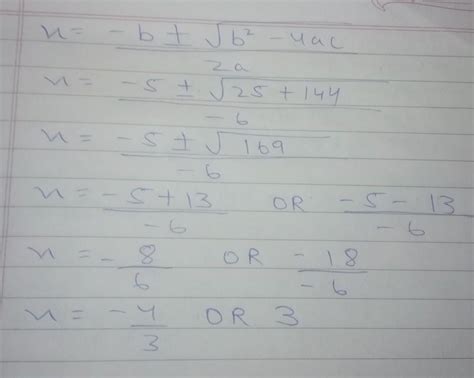 x = -b ± √b² - 4ac / 2a
x = -5 ± √25 + 144 / -6
x = -5 ± √169 / -6
x = -5 + 13 / -6 OR -5 - 13 / -6
x = - 8 / 6 OR -18 / -6
x = - 4 / 3 OR 3